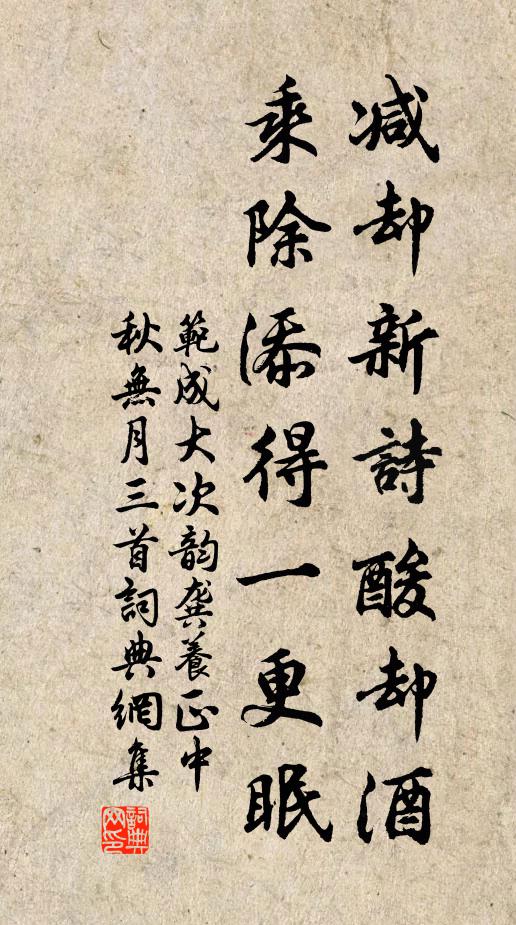 减却新詩酸却酒
乘除添得一更眠
範成大次韵龔養正中
秋無月三首詞典網集
詞典
网印